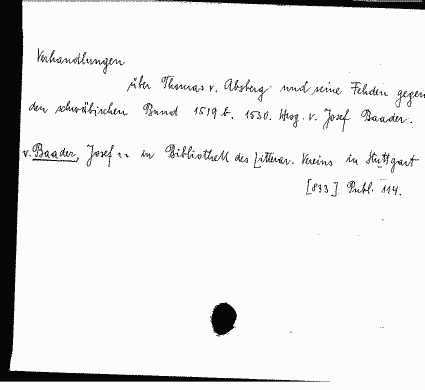 Verhandlungen
über Thomas v. Absberg und seine Fehden gegen
den schwäbischen Bund 1519 b. 1530. Hrsg. v. Josef Baader.
v. Baader, Josef .. in Bibliothek des Litterar. Vereins in Stuttgart
[833] Publ. 114.